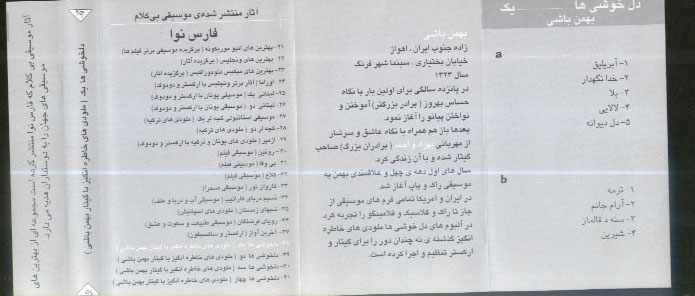 دل خوشی ها یک
بهمن باشی
a
۱- آبریلیق
۲- خدا نگهدار
۳- یلا
۴- لالایی
۵- دل دیوانه
b
۱- ترمه
۲- آرام جانم
۳- سنه د قالماز
۴- شیرین
بهمن باشی
زاده جنوب ایران، اهواز
خیابان بختیاری، سینما شهر فرنگ
سال ۱۳۲۳
در پانزده سالگی برای اولین بار با نگاه
حساس بهروز (برادر بزرگتر) آموختن و
نواختن پیانو را آغاز نمود.
بعدها باز هم همراه با نگاه عاشق و سرشار
از مهربانی بهزاد و احمد (برادران بزرگ) صاحب
گیتار شده و با آن زندگی کرد.
سال های اول دهه ی چهل و علاقمندی بهمن به
موسیقی راک و پاپ آغاز شد.
در ایران و آمریکا تمامی فرم های موسیقی از
جاز تا راک و کلاسیک و فلامینگو را تجربه کرد.
در آلبوم های دل خوشی ها ملودی های خاطره
انگیز گذشته ی نه چندان دور را برای گیتار و
ارکستر تنظیم و اجرا کرده است.
آثار منتشر شده‌ی موسیقی بی‌کلام
فارس نوا
۲۱- بهترین های انیو موریکونه (برگزیده موسیقی برتر فیلم ها)
۲۲- بهترین های ونجلیس (برگزیده آثار)
۲۳- بهترین های میکیس تئودوراکیس (برگزیده آثار)
۲۴- اوراما (آثار برتر ونجلیس با ارکستر و دودوک)
۲۵- لیتانی یک (موسیقی یونان با ارکستر و دودوک)
۲۶- لیتانی دو (موسیقی یونان با ارکستر و دودوک)
۲۷- موسیقی استانبولی گجه لر یک (ملودی های ترکیه)
۲۸- گجه لر دو (ملودی های ترکیه)
۲۹- ازمیر (ملودی های یونان و ترکیه با ارکستر و دودوک)
۳۰- رونین (موسیقی فیلم)
۳۱- بی وفا (موسیقی فیلم)
۳۲- کلاغ (موسیقی فیلم)
۳۳- کاروان نور (موسیقی صحرا)
۳۴- نسیم دریای کارائیب (موسیقی آب و دریا و طیف)
۳۵- شبهای زمستان (ملودی های اسپانیش)
۳۶- رویای فرشتگان (موسیقی طبیعت و سکوت و عشق)
۳۷- آخرین آواز (ارکستر و ساکسیفون)
۳۸- دلخوشی ها یک (ملودی های خاطره انگیز با گیتار بهمن باشی)
۳۹- دلخوشی ها دو (ملودی های خاطره انگیز با گیتار بهمن باشی)
۴۰- دلخوشی ها سه (ملودی های خاطره انگیز با گیتار بهمن باشی)
۴۱- دلخوشی ها چهار (ملودی های خاطره انگیز با گیتار بهمن باشی)
دلخوشی ها یک (ملودی های خاطره انگیز با گیتار بهمن باشی)
آثار موسیقی بی کلام که فارس نوا منتشر کرده است مجموعه ای از بهترین های
موسیقی های جهان را به دوستداران هدیه می دارد.